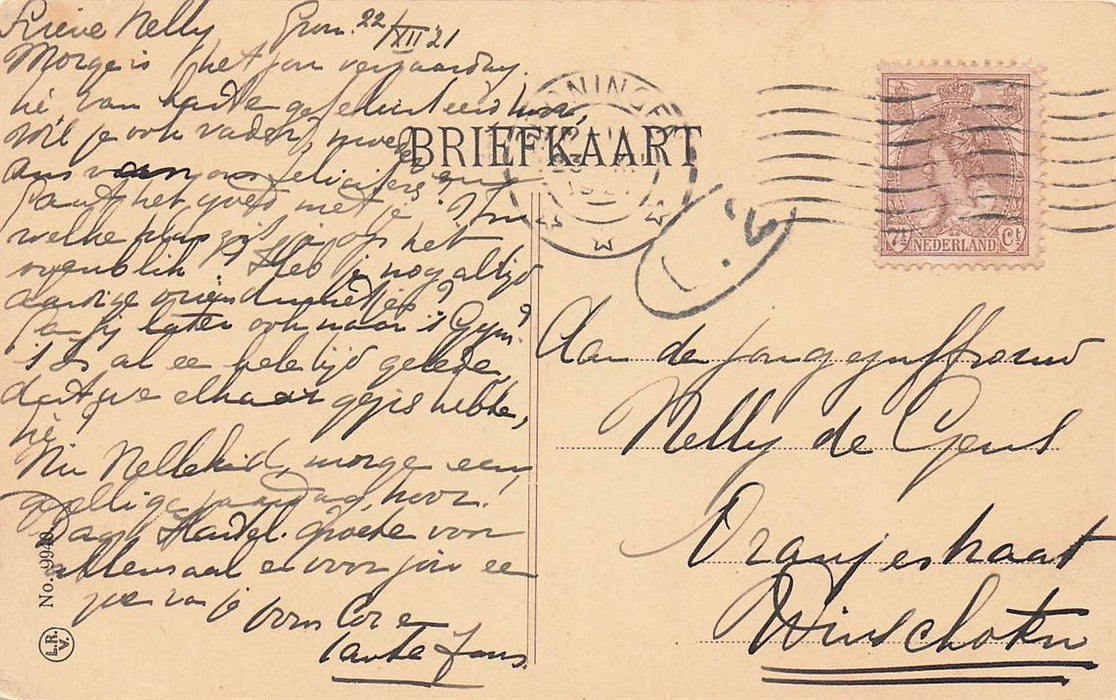 Lieve Nelly Gron. 22/XII '21
Morge is 't het jou verjaardag,
hè, van harte gefeliciteerd hoor,
Wil je ook vader, moeder en
ans van ons feliciteren?
Gaat het goed met je? In
welke klas zit jij op het
oogenblik? Heb je nog altijd
aardige vriendinnetjes?
Ga jij later ook naar 't Gym?
't Is al ee hele tijd gelede,
dat we elkaar gezien hebbe,
hè
Nu Nellekind, morge een
gezellige jaardag, hoor!
Dag! Hartel. groete voor
allemaal en voor jou ee
zoe van je
oom Cor e
tante Jans.
No. 9940.
L.R.
V.
BRIEFKAART
GRONINGEN
1921
7½ NEDERLAND Ct
Aan de jongejuffrouw
Nelly de Geus
Oranjestraat
Winschoten